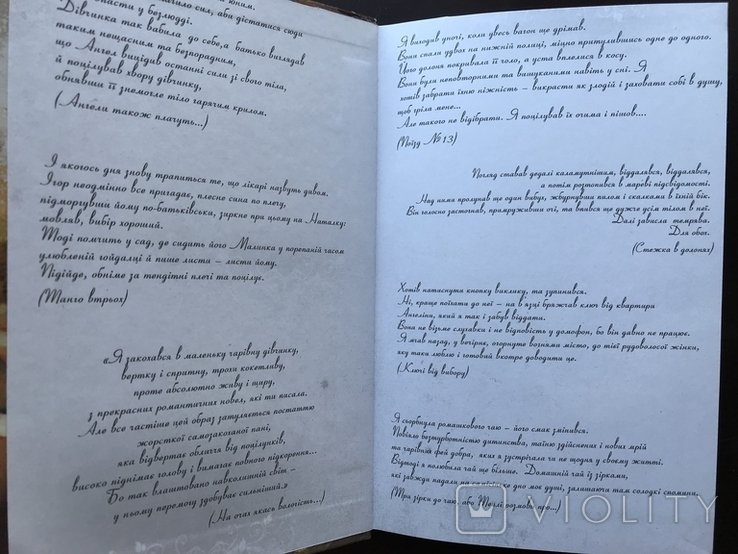 юним.
пасти у безлюдді.
ачило сил, аби дістатися сюди
Дівчинка так вабила до себе, а батько виглядав
таким нещасним та безпорадним,
що Ангел вицідив останні сили зі свого тіла,
й поцілував хвору дівчинку,
обнявши її знемогле тіло гарячим крилом.
(Ангели також плачуть...)
І якогось дня знову трапиться те, що лікарі назвуть дивом.
Ігор неодмінно все пригадає, плесне сина по плечу,
підморгнувши йому по-батьківськи, зиркне при цьому на Наталку:
мовляв, вибір хороший.
Тоді помчить у сад, де сидить його Малинка у порепаній часом
улюбленій гойдалці й пише листа – листи йому.
Підійде, обніме за тендітні плечі та поцілує.
(Танго втрьох)
«Я закохався в маленьку чарівну дівчинку,
вертку і спритну, трохи кокетливу,
проте абсолютно живу і щиру,
з прекрасних романтичних новел, які ти писала.
Але все частіше цей образ затуляється постаттю
жорсткої самозакоханої пані,
яка відвертає обличчя від поцілунків,
високо піднімає голову і вимагає повного підкорення...
Бо так влаштовано навколишній світ –
у ньому перемогу здобуває сильніший.»
(На очах якась вологість...)
Я виходив уночі, коли увесь вагон ще дрімав.
Вони спали удвох на нижній полиці, міцно притулившись одне до одного.
Його долоня покривала її чоло, а уста вплелися в косу.
Вони були неповторними та вишуканими навіть у сні. Я
хотів забрати їхню ніжність – викрасти як злодій і заховати собі в душу,
щоб гріла мене...
Але такого не відібрати. Я поцілував їх очима і пішов....
(Поїзд №13)
Погляд ставав дедалі каламутнішим, віддалявся, віддалявся,
а потім розтопився в мареві підсвідомості.
Над ними пролунав ще один вибух, жбурнувши пилом і скалками в їхній бік.
Він голосно застогнав, примруживши очі, та вп'явся ще дужче усім тілом в неї.
Далі зависла темрява.
Для обох.
(Стежка в долонях)
Хотів натиснути кнопку виклику, та зупинився.
Ні, краще поїхати до неї – на в'язці бряжчав ключ від квартири
Ангеліни, який я так і забув віддати.
Вона не візьме слухавки і не відповість у домофон, бо він давно не працює.
Я мчав назад, у вечірнє, огорнуте вогнями місто, до тієї рудоволосої жінки,
яку таки люблю і готовий вкотре доводити це.
(Ключі від вибору)
Я сьорбнула ромашкового чаю – його смак змінився.
Повіяло безтурботністю дитинства, таїною здійснених і нових мрій
та чарівній феї добра, яких я зустрічала чи не щодня у своєму житті.
Відтоді я полюбила чай ще більше. Домашній чай із зірками,
які завжди падали на дно моє душі, залишаючи там солодкі спомини.
(Три зірки до чаю, або розмови про...)
VIOLITY